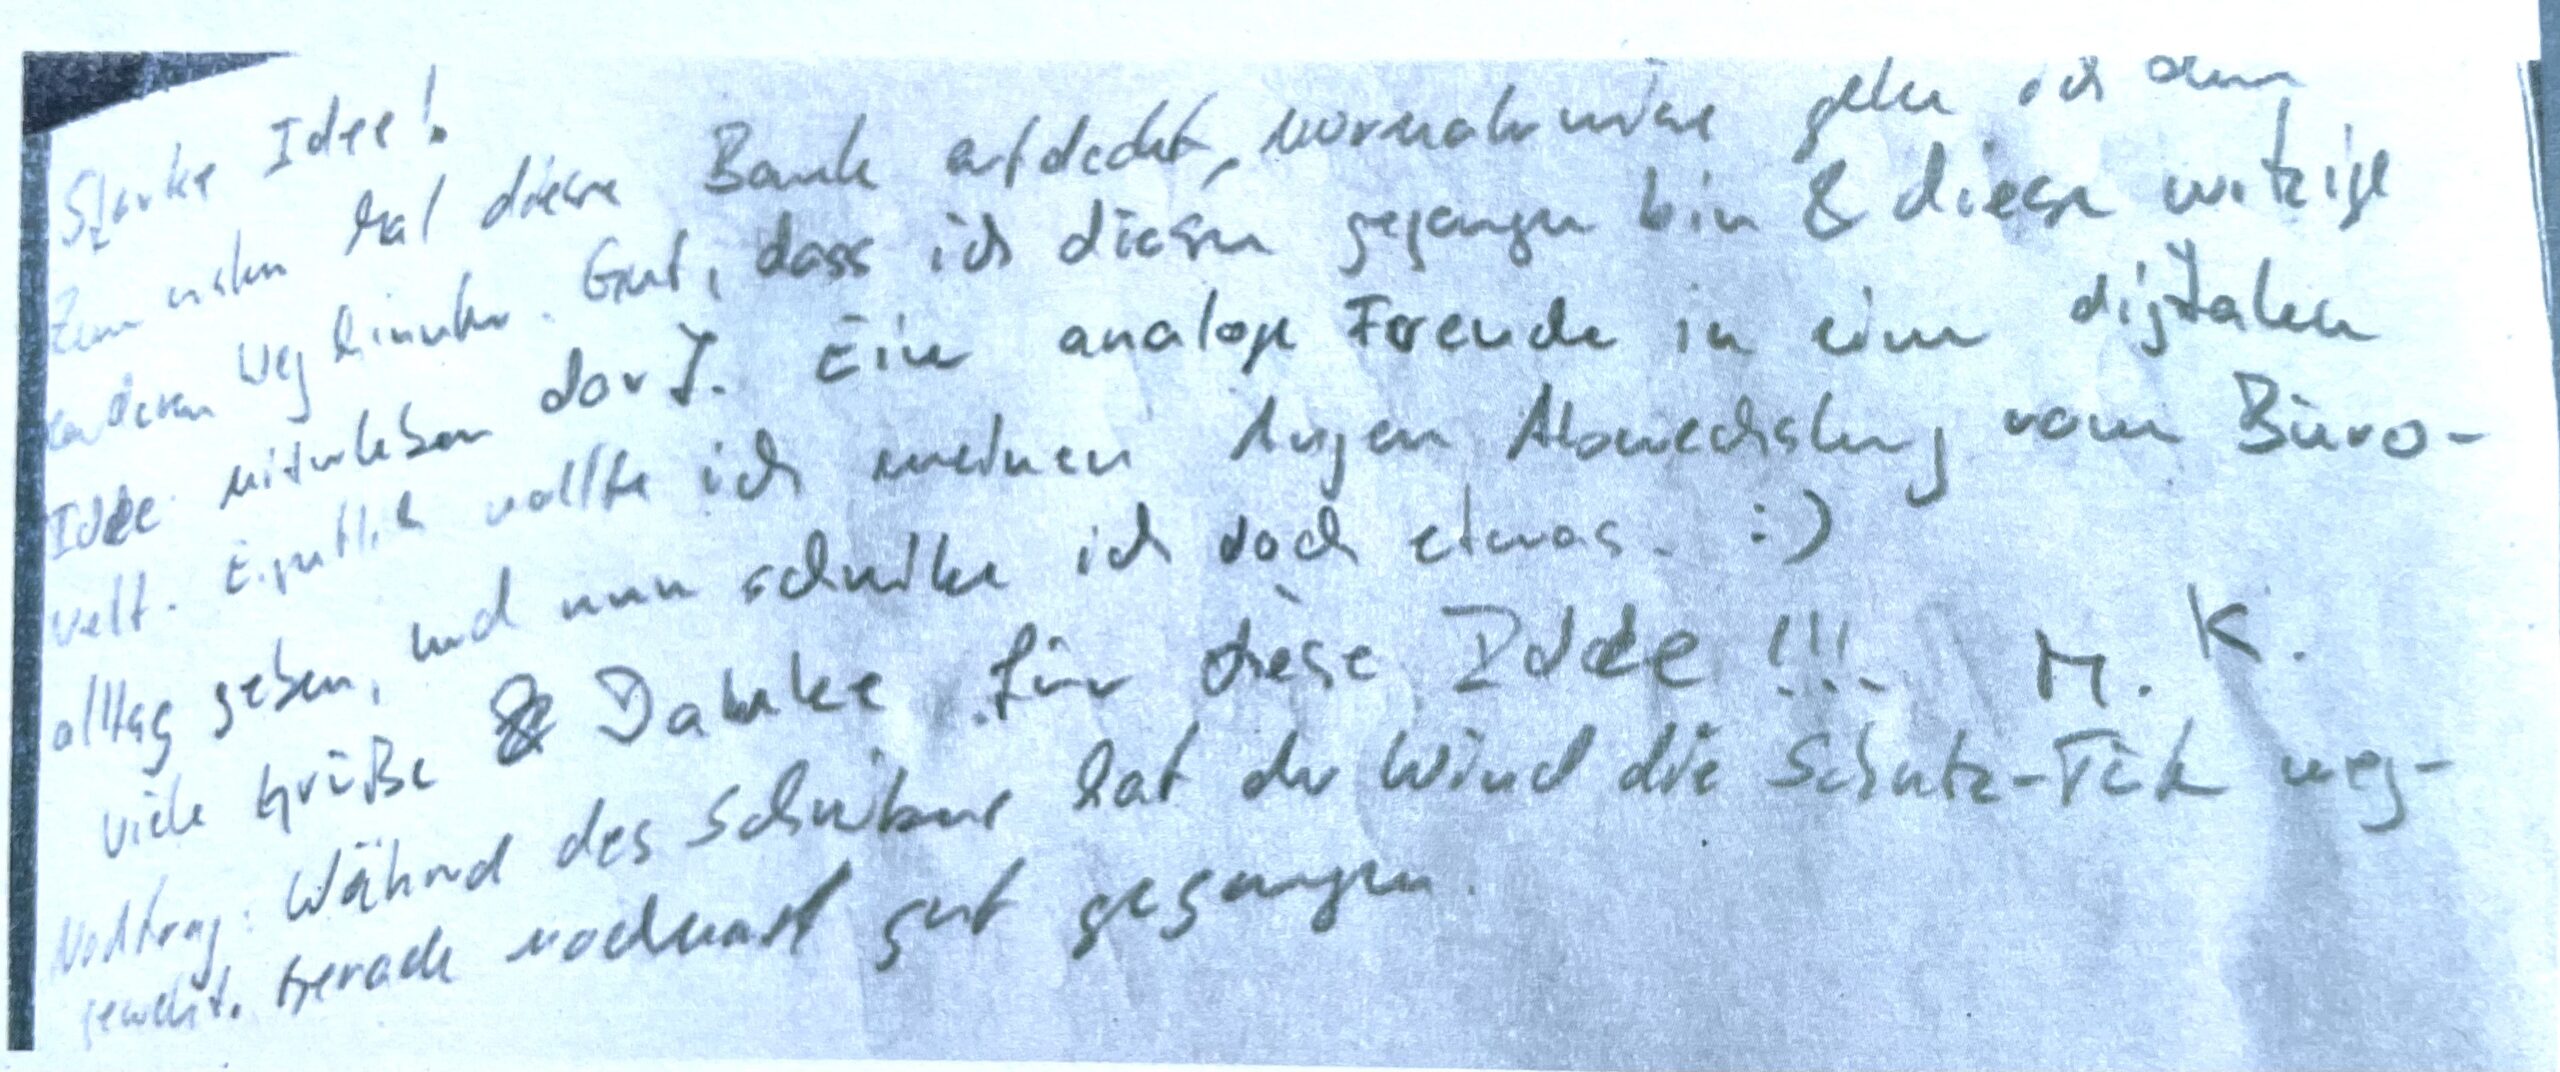 Starke Idee!
Zum ersten Mal diese Bank entdeckt, normalerweise gehe ich den
anderen Weg hinunter. Gut, dass ich diesen gegangen bin & diese witzige
Idee miterleben darf. Eine analoge Freude in einer digitalen
Welt. Eigentlich wollte ich meinen Augen Abwechslung vom Büro-
alltag geben, und nun schreibe ich doch etwas. :)
Viele Grüße & Danke für diese Idee!!! M. K.
Nachtrag: Während des Schreibens hat der Wind die Schutz-Tüte weg-
geweht. Gerade nochmal gut gegangen.